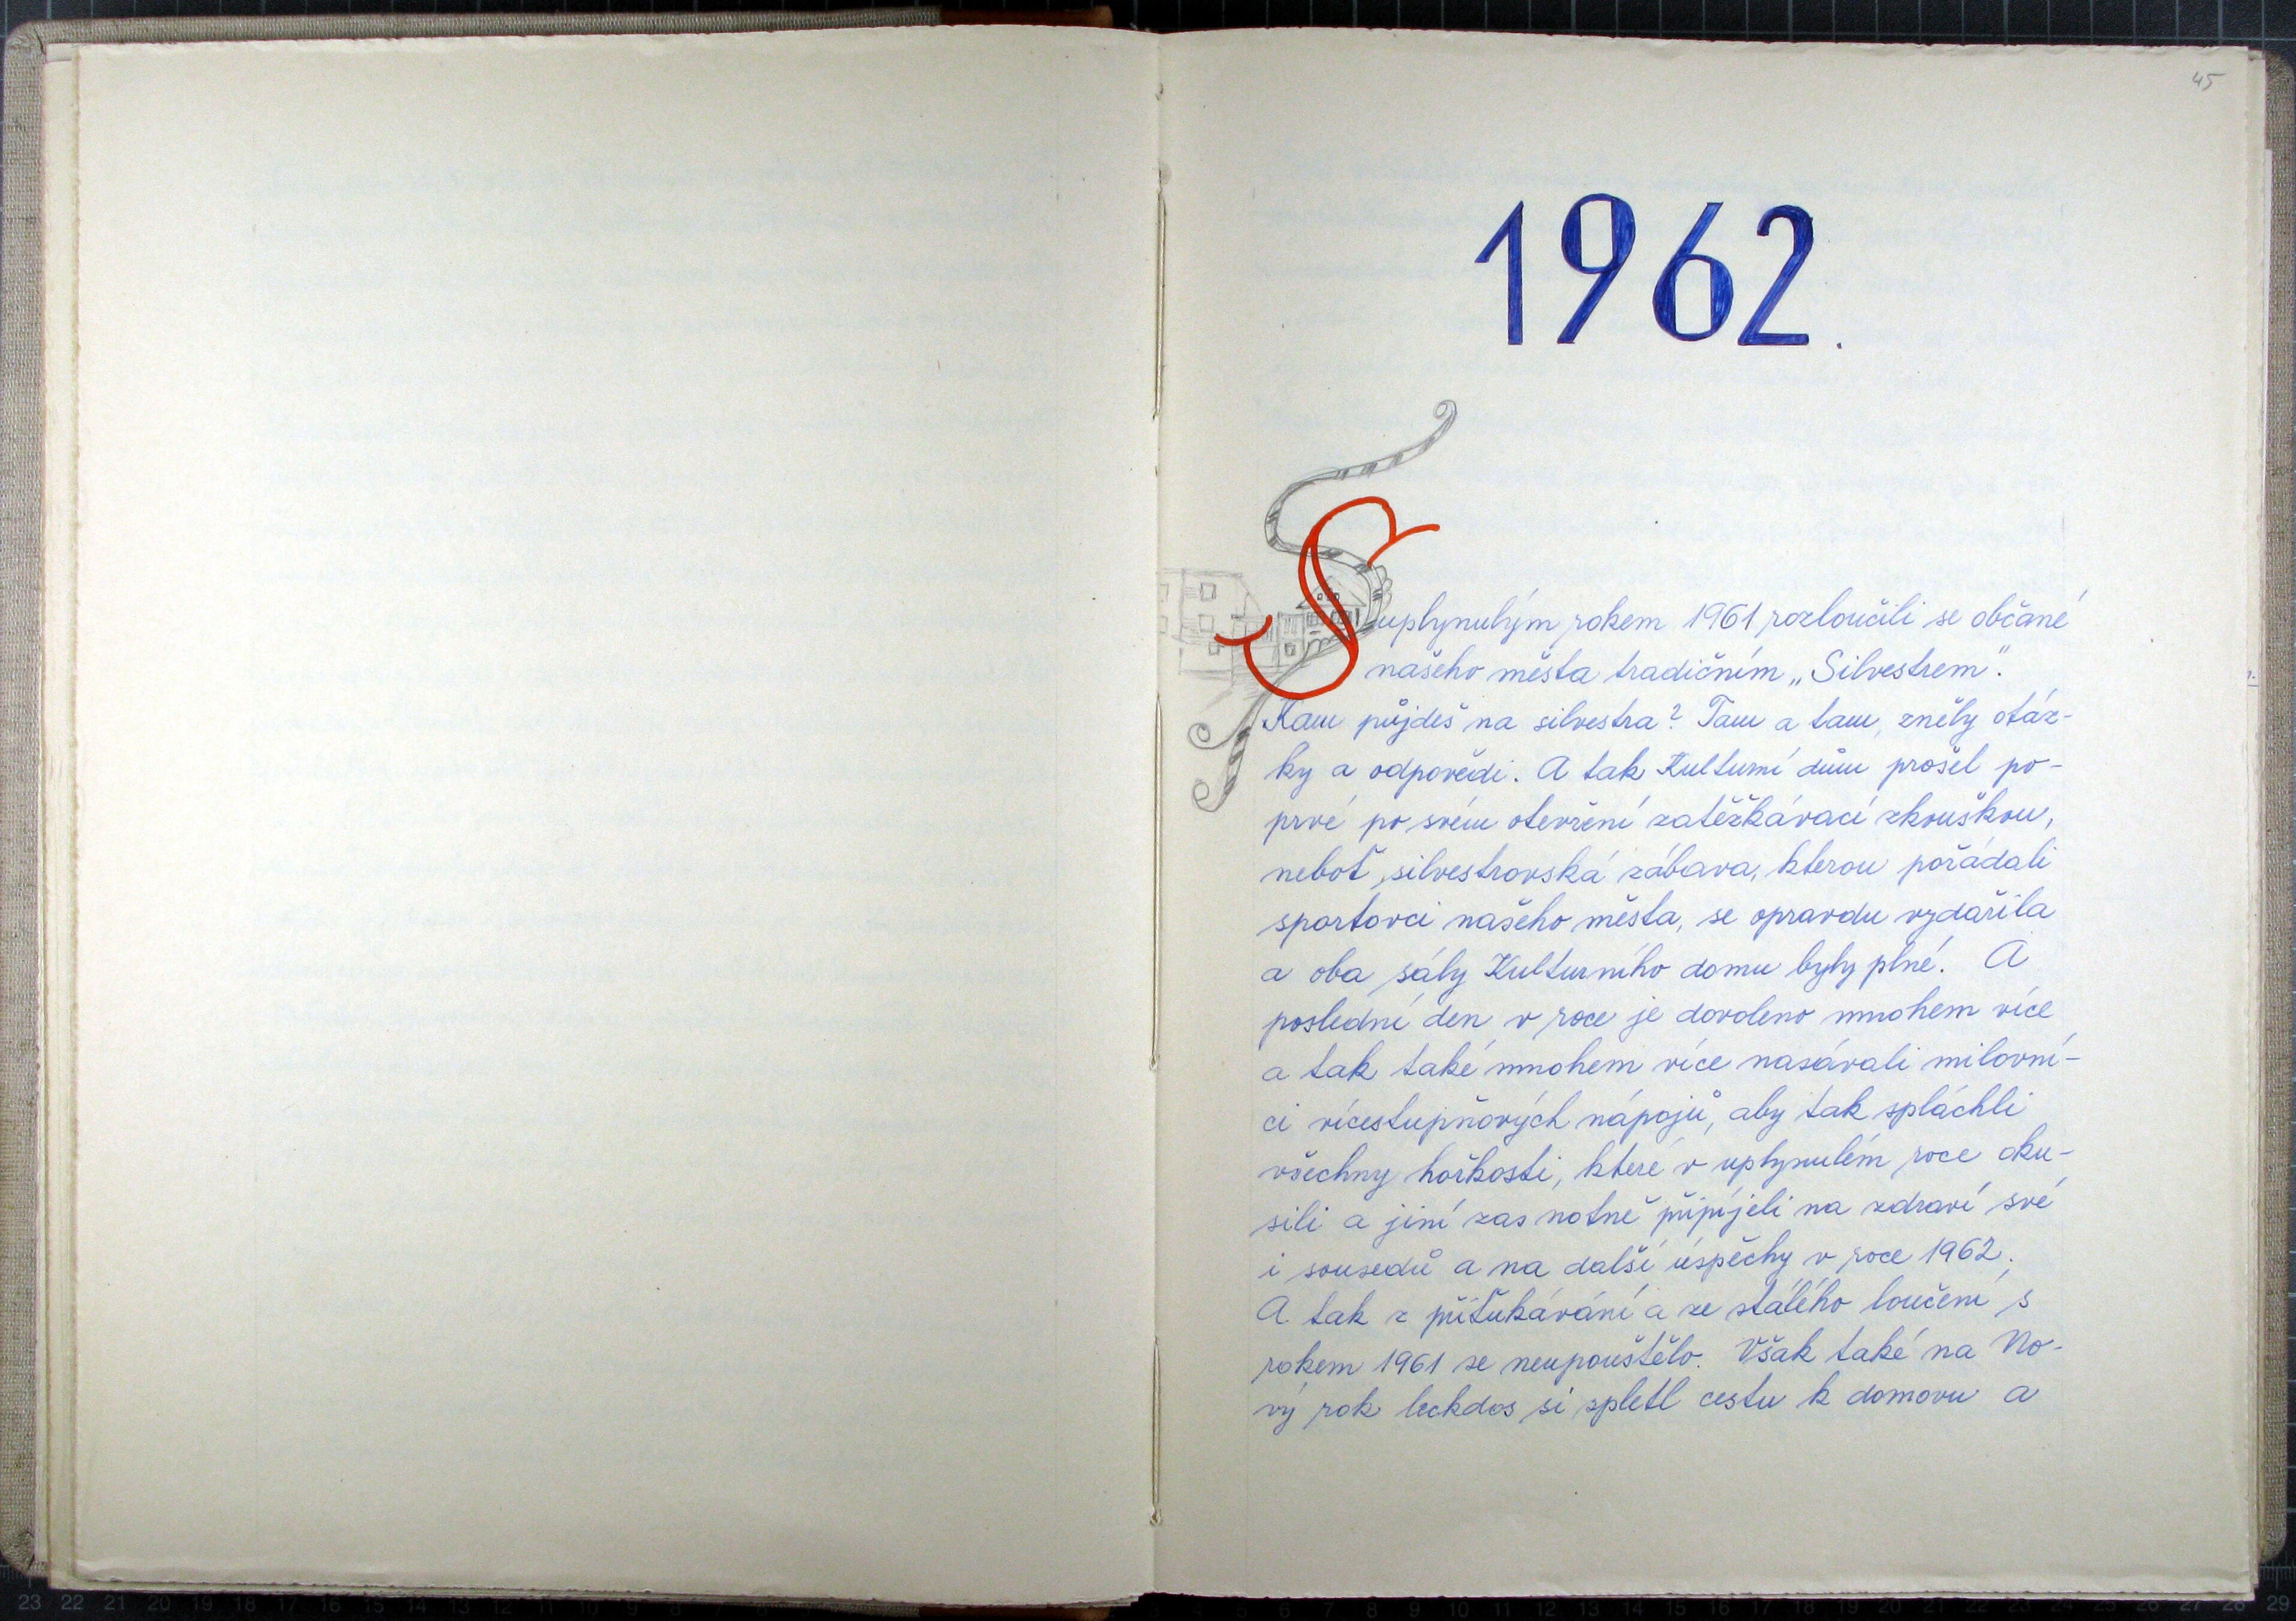 45
1962.
S uplynulým rokem 1961 rozloučili se občané
našeho města tradičním „Silvestrem".
Kam půjdeš na silvestra? Tam a tam, zněly otáz-
ky a odpovědi. A tak Kulturní dům prošel po-
prvé po svém otevření zatěžkávací zkouškou,
neboť silvestrovská zábava, kterou pořádali
sportovci našeho města, se opravdu vydařila
a oba sály Kulturního domu byly plné. A
poslední den v roce je dovoleno mnohem více
a tak také mnohem více nasávali milovní-
ci vícestupňových nápojů, aby tak spláchli
všechny hořkosti, které v uplynulém roce oku-
sili a jiní zas notně připíjeli na zdraví své
i sousedů a na další úspěchy v roce 1962.
A tak z přiťukávání a ze stálého loučení s
rokem 1961 se neupouštělo. Však také na No-
vý rok leckdos si spletl cestu k domovu a